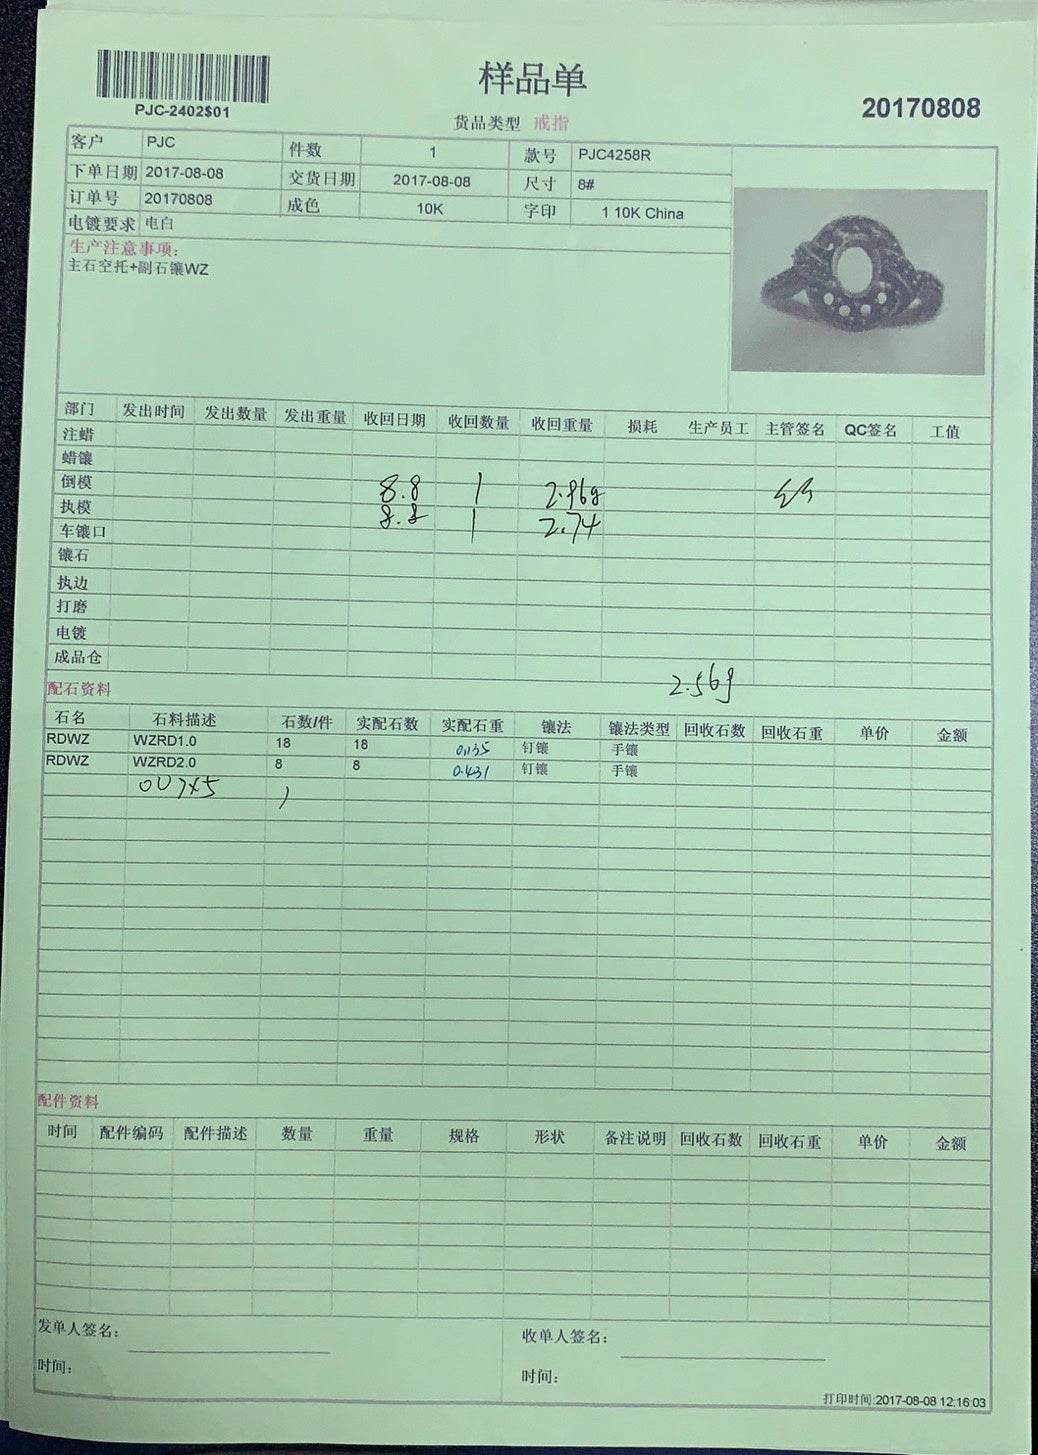 样品单
PJC-2402$01
货品类型 戒指
20170808
客户 PJC 件数 1 款号 PJC4258R
下单日期 2017-08-08 交货日期 2017-08-08 尺寸 8#
订单号 20170808 成色 10K 字印 1 10K China
电镀要求 电白
生产注意事项：
主石空托+副石镶WZ
部门 发出时间 发出数量 发出重量 收回日期 收回数量 收回重量 损耗 生产员工 主管签名 QC签名 工值
注蜡
蜡镶
倒模 8.8 1 2.96g
执模 8.8 1 2.74
车镶口
镶石
执边
打磨
电镀
成品仓
2.56g
配石资料
石名 石料描述 石数/件 实配石数 实配石重 镶法 镶法类型 回收石数 回收石重 单价 金额
RDWZ WZRD1.0 18 18 0.135 钉镶 手镶
RDWZ WZRD2.0 8 8 0.431 钉镶 手镶
OV7x5 1
配件资料
时间 配件编码 配件描述 数量 重量 规格 形状 备注说明 回收石数 回收石重 单价 金额
发单人签名：
收单人签名：
时间：
时间：
打印时间:2017-08-08 12:16:03